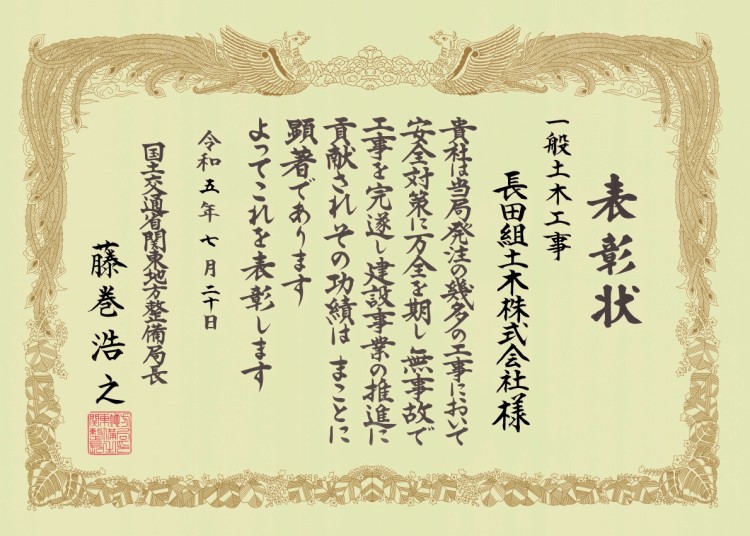 表彰状
一般土木工事
長田組土木株式会社様
貴社は当局発注の幾多の工事において
安全対策に万全を期し無事故で
工事を完遂し建設事業の推進に
貢献されその功績はまことに
顕著であります
よってこれを表彰します
令和五年七月二十日
国土交通省関東地方整備局長
藤巻浩之